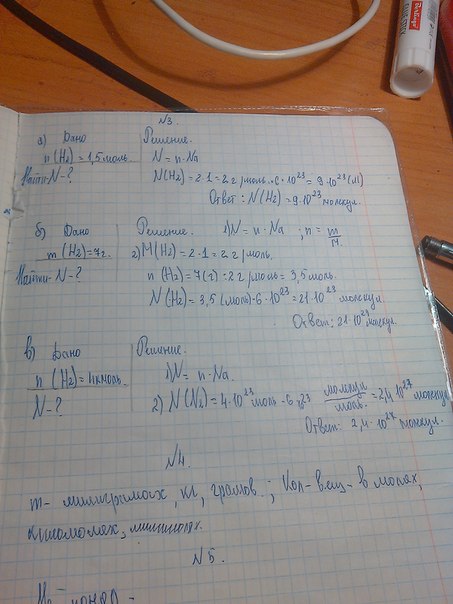 N3.
а) Дано
n(H₂) = 1,5 моль
Найти N-?
Решение.
N = n·Na
N(H₂) = 2·1 = 2 г/моль · 6·10²³ = 9·10²³ (м)
Ответ: N(H₂) = 9·10²³ молекул.
б) Дано
m(H₂) = 7г.
Найти N-?
Решение. 1) N = n·Na ; n = m/M
2) M(H₂) = 2·1 = 2 г/моль.
n(H₂) = 7(г) : 2 г/моль = 3,5 моль.
N(H₂) = 3,5 (моль)·6·10²³ = 21·10²³ молекул.
Ответ: 21·10²³ молекул.
в) Дано
n(H₂) = 4кмоль.
N-?
Решение.
1) N = n·Na.
2) N(N₂) = 4·10²³ моль·6·10²³ молекул/моль = 2,4·10²⁷ молекул
Ответ: 2,4·10²⁷ молекул.
N4.
m - милиграмах, кг, грамов.; Кол-вещ-в молях,
киломолях, милимолях.
N5.